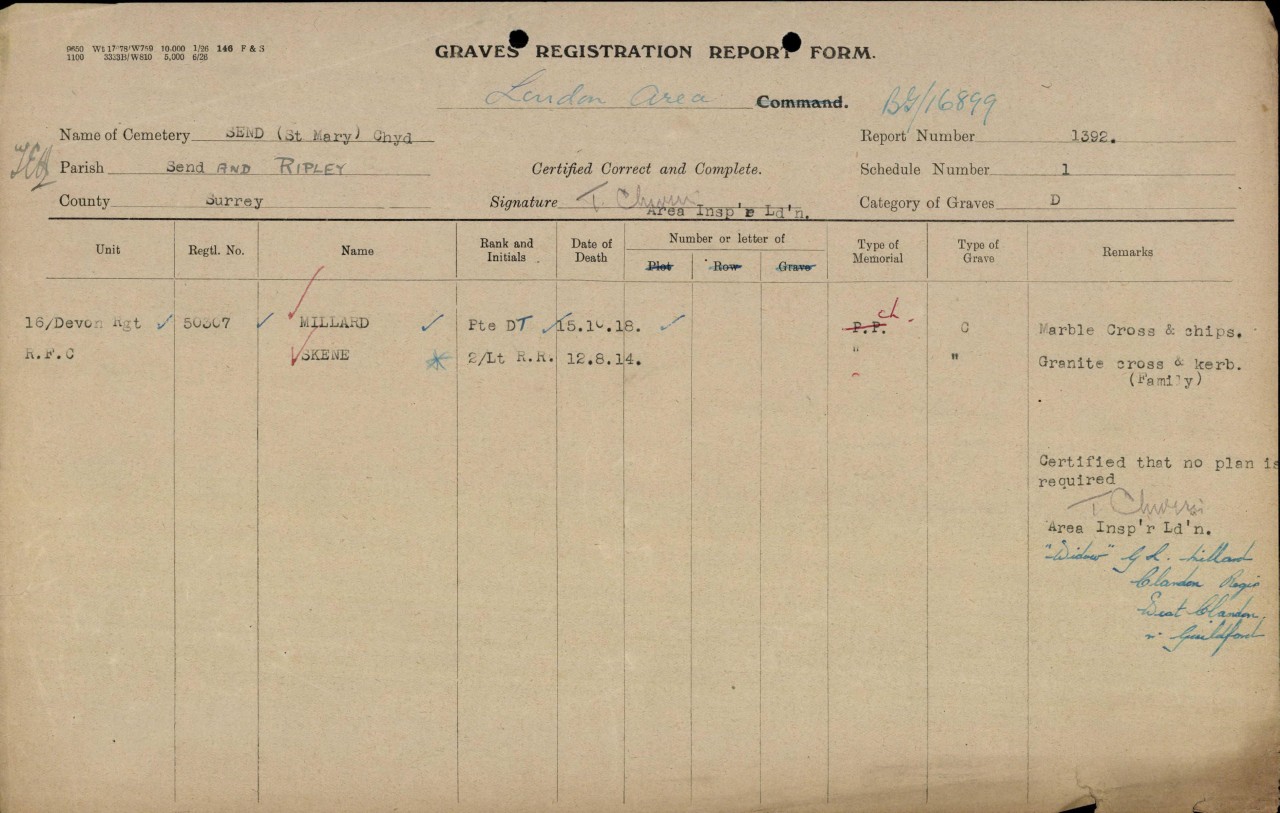 9650 Wt 17078/W759 10,000 1/26 146 F & S
1100 3333B/W810 5,000 6/26
GRAVES REGISTRATION REPORT FORM.
London Area Command. BG/16899
Name of Cemetery SEND (St Mary) Chyd Report Number 1392.
Parish Send AND RIPLEY Certified Correct and Complete. Schedule Number 1
County Surrey Signature T. Area Insp'r Ld'n. Category of Graves D
Unit Regtl. No. Name Rank and Initials Date of Death Number or letter of Plot Row Grave Type of Memorial Type of Grave Remarks
16/Devon Rgt 50307 MILLARD Pte DT 15.10.18. P.P. ch. C Marble Cross & chips.
R.F.C SKENE 2/Lt R.R. 12.8.14. " " Granite cross & kerb.
(Family)
Certified that no plan is
required
T.
Area Insp'r Ld'n.
"Widow" G L. Millard
Clandon Regis
West Clandon,
nr Guildford